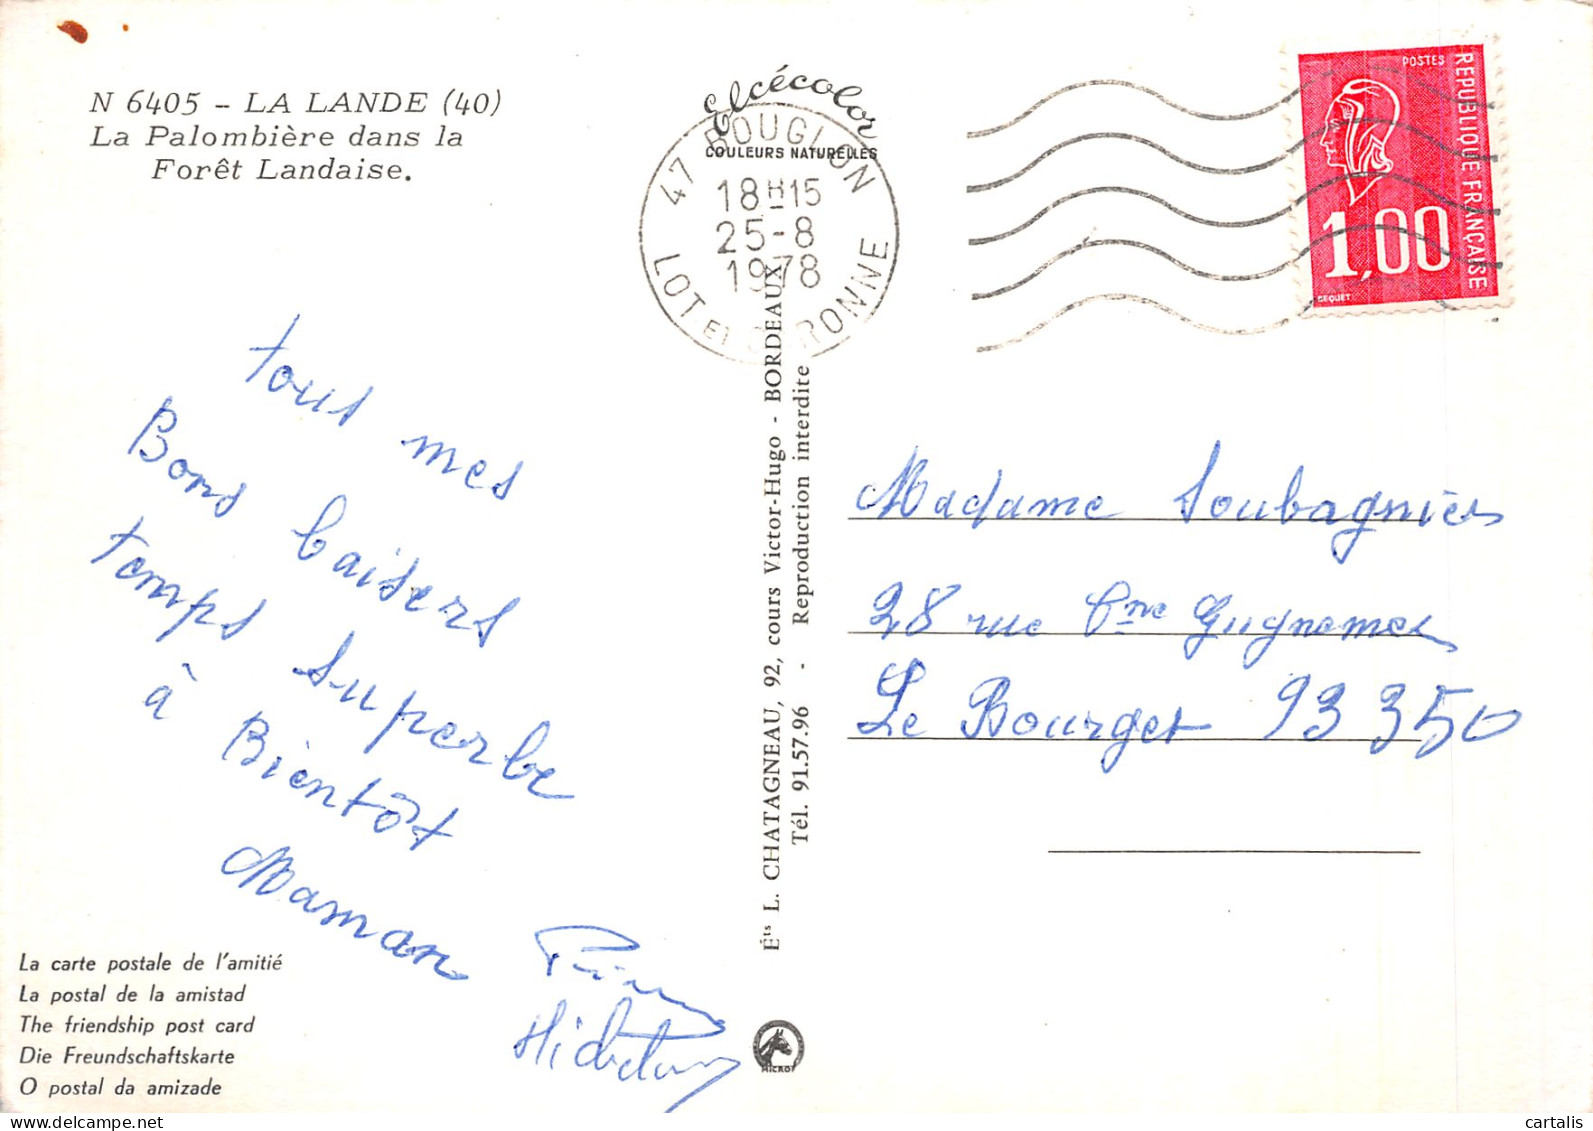 N 6405 - LA LANDE (40)
La Palombière dans la
Forêt Landaise.
Elcécolor
COULEURS NATURELLES
47 BOUGLON
18H15
25-8
1978
LOT ET GARONNE
POSTES
REPUBLIQUE FRANÇAISE
1,00
GEQUET
tous mes
Bons baisers
temps superbe
à Bientôt
Maman
Madame Soubagnies
28 rue Cne Guynemer
Le Bourget 93350
Éts L. CHATAGNEAU, 92, cours Victor-Hugo - BORDEAUX
Tél. 91.57.96 - Reproduction interdite
La carte postale de l'amitié
La postal de la amistad
The friendship post card
Die Freundschaftskarte
O postal da amizade
cartalis